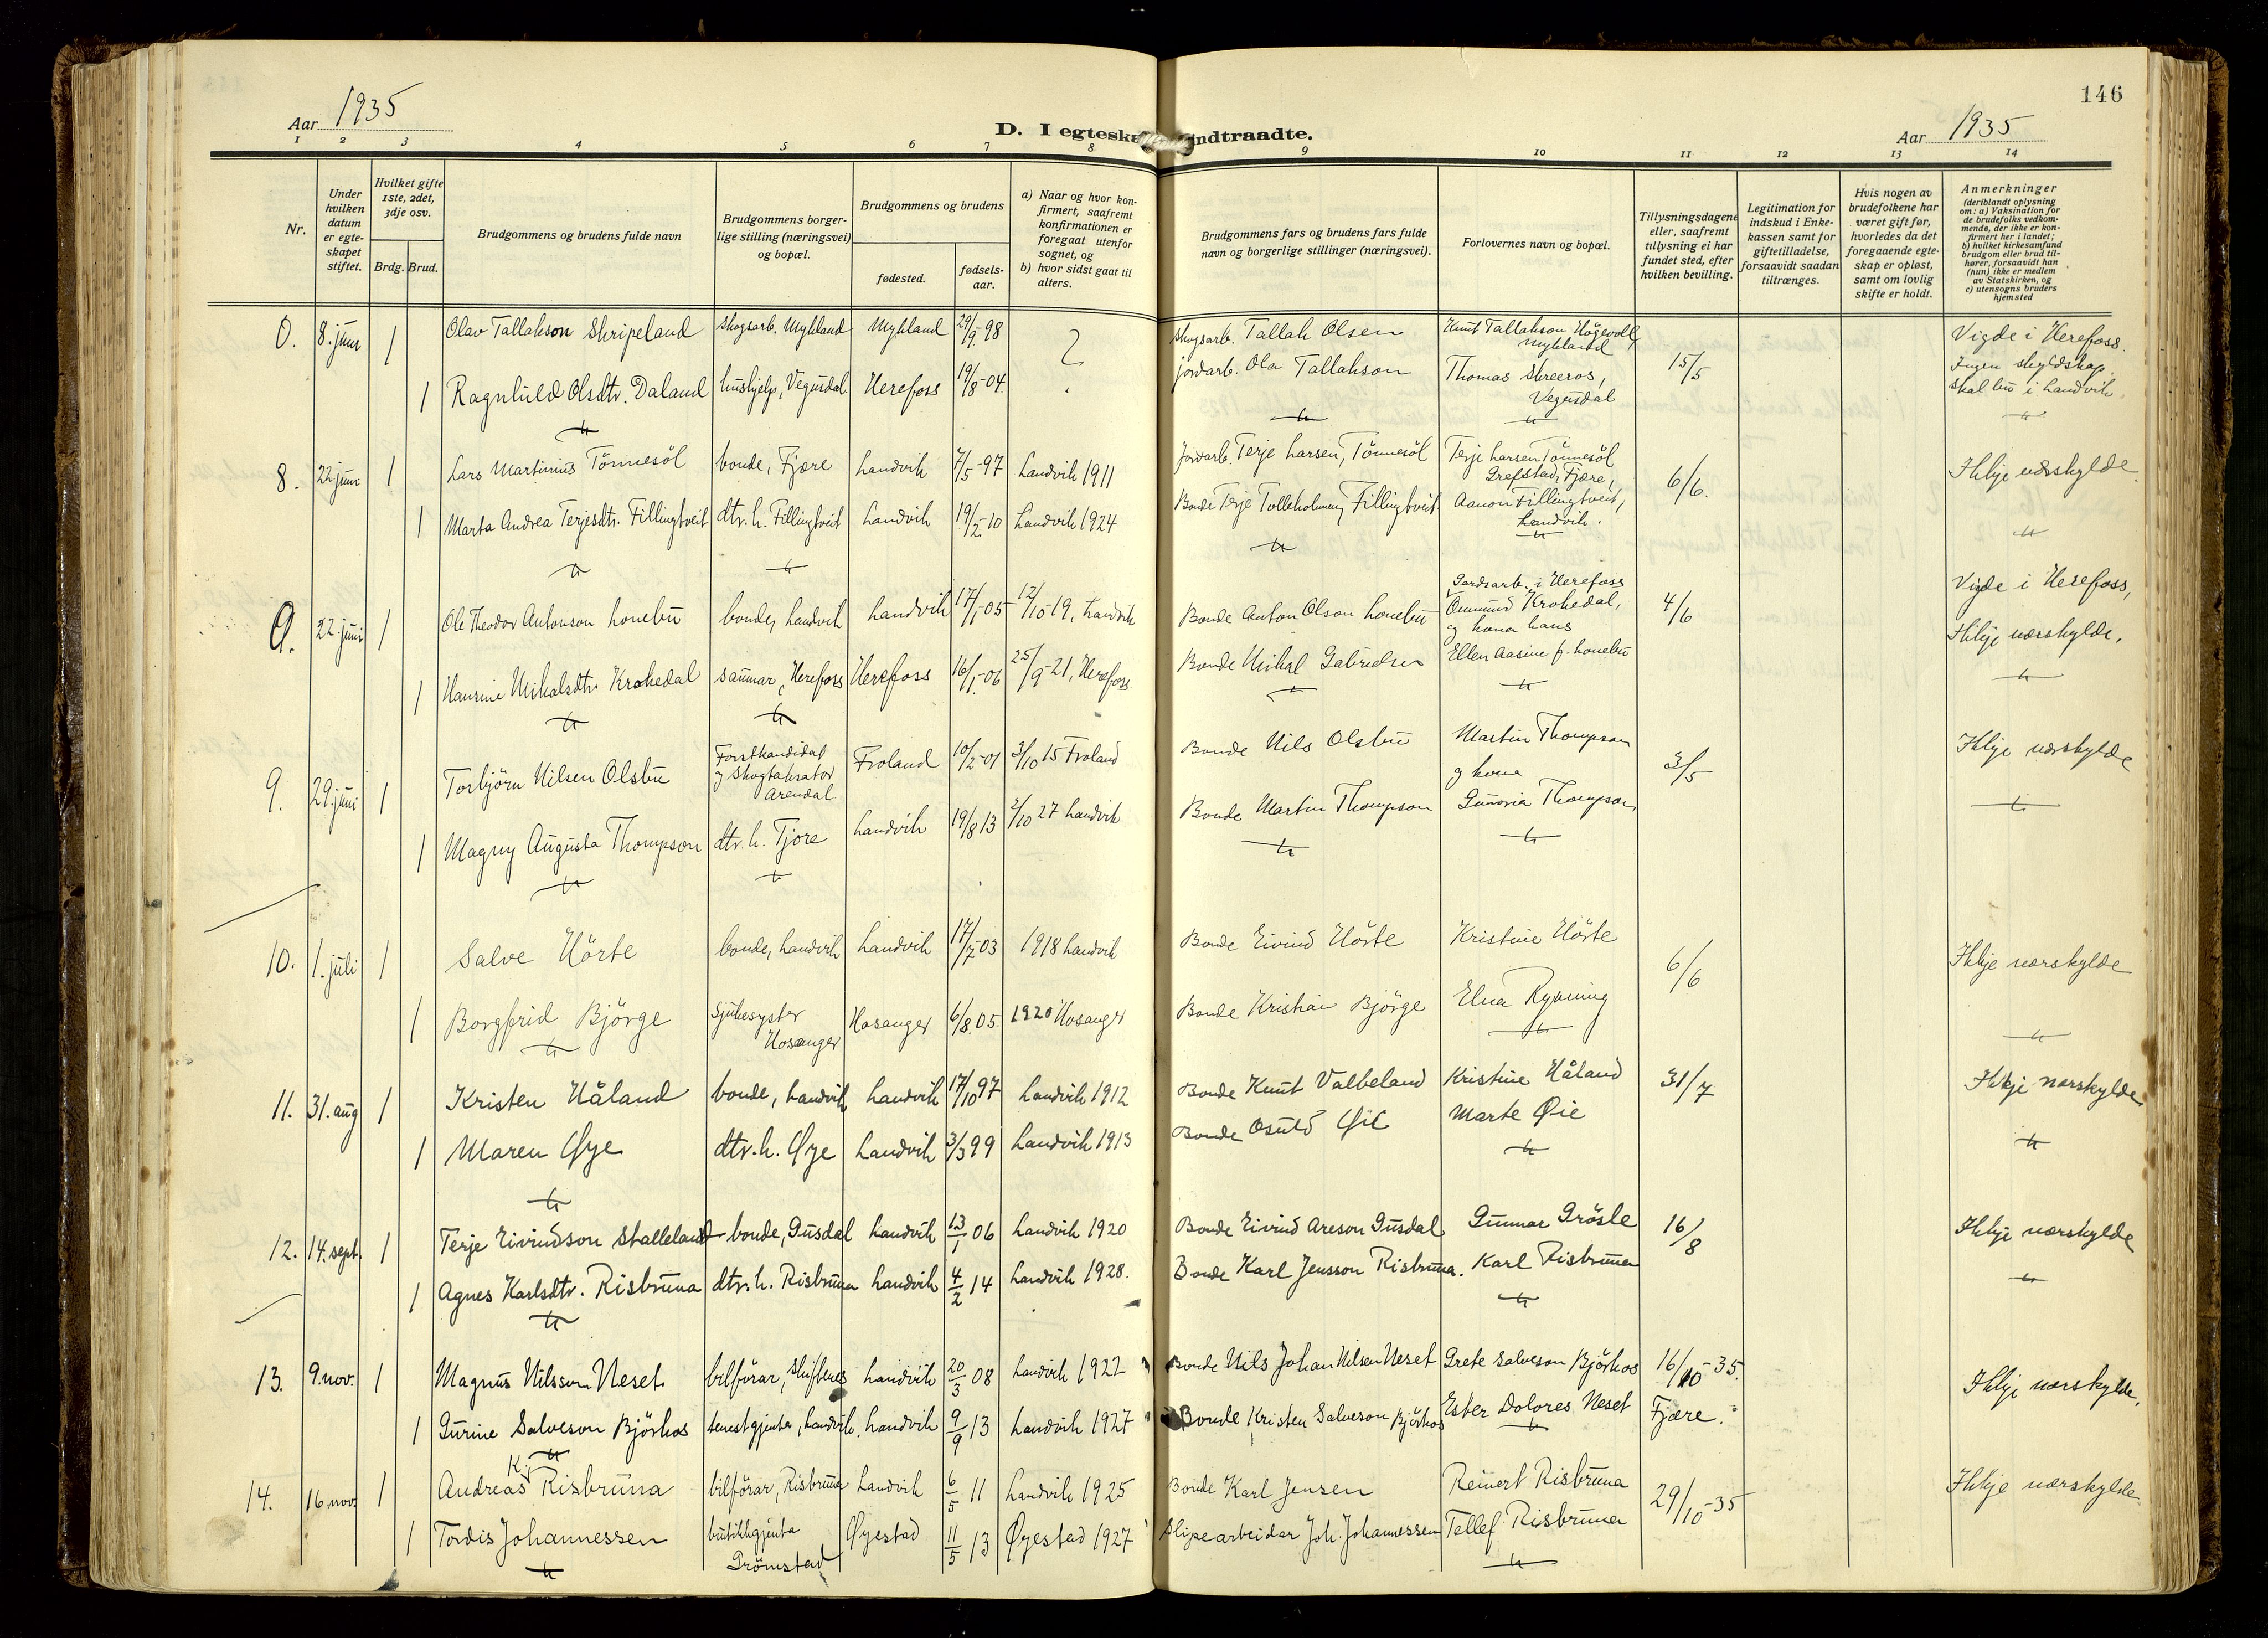 146
Aar 1935
D. I egteska
ndtraadte.
Aar 1935
1 2 3 4 5 6 7 8 9 10 11 12 13 14
Nr.
Under hvilken datum er egteskapet stiftet.
Hvilket gifte 1ste, 2det, 3dje osv.
Brdg. Brud.
Brudgommens og brudens fulde navn
Brudgommens borgerlige stilling (næringsvei) og bopæl.
Brudgommens og brudens
fødested.
fødselsaar.
a) Naar og hvor konfirmert, saafremt konfirmationen er foregaat utenfor sognet, og
b) hvor sidst gaat til alters.
Brudgommens fars og brudens fars fulde navn og borgerlige stillinger (næringsvei).
Forlovernes navn og bopæl.
Tillysningsdagene eller, saafremt tillysning ei har fundet sted, efter hvilken bevilling.
Legitimation for indskud i Enkekassen samt for giftetilladelse, forsaavidt saadan tiltrænges.
Hvis nogen av brudefolkene har været gift før, hvorledes da det foregaaende egteskap er opløst, samt om lovlig skifte er holdt.
Anmerkninger (deriblandt oplysning om: a) Vaksination for de brudefolks vedkommende, der ikke er konfirmert her i landet; b) hvilket kirkesamfund brudgom eller brud tilhører, forsaavidt han (hun) ikke er medlem av Statskirken, og c) utensogns bruders hjemsted
0. 8. juni 1 Olav Tallakson Skripeland skogsarb. Mykland Mykland 29/9-98 ? skogsarb. Tallak Olsen Knut Tallakson Högevoll, Mykland 15/5 Vigde i Herefoss. Ingen skyldskap. Skal bu i Landvik.
1 Ragnhild Olsdtr. Daland hushjelp, Vegusdal Herefoss 19/8-04. jordarb. Ola Tallakson Thomas Skreeros, Vegusdal
8. 22 juni 1 Lars Martinius Tönnesöl bonde, Fjære Landvik 7/5-97 Landvik 1911 Jordarb. Terje Larsen, Tönnesöl Terje Larsen Tönnesöl Grefstad, Fjære, 6/6. Ikkje nærskylde
1 Marta Andrea Terjesdtr. Fillingtveit dtr. h. Fillingtveit Landvik 19/2-10 Landvik 1924 Bonde Terje Tolleholmen, Fillingtveit Aanon Fillingtveit, Landvik.
0. 22. juni 1 Ole Theodor Antonson Lonebu bonde, Landvik Landvik 17/1-05 12/10-19, Landvik Bonde Anton Olson Lonebu Gardsarb. i Herefoss Omund Krokedal, og kona hans 4/6 Vigde i Herefoss, Ikkje nærskylde.
1 Hansine Mikalsdtr. Krokedal saumar, Herefoss Herefoss 16/1-06 25/9-21, Herefoss Bonde Mikal Gabrielsen Ellen Aasine f. Lonebu
9. 29. juni 1 Torbjörn Nilsen Olsbu Forstkandidat og skogtaksator Arendal Froland 10/2-01 3/10 15 Froland Bonde Nils Olsbu Martin Thompson og kona 3/5 Ikkje nærskylde
1 Magny Augusta Thompson dtr. h. Tjore Landvik 19/8 13 2/10 27 Landvik Bonde Martin Thompson Gunovia Thompson
10. 1. juli 1 Salve Hörte bonde, Landvik Landvik 17/7-03 1918 Landvik Bonde Eivind Hörte Kristine Hörte 6/6 Ikkje nærskylde
1 Borgfrid Björge Sjukesyster Hosanger Hosanger 6/8.05. 1920 Hosanger Bonde Kristian Björge Elna Ryvning
11. 31. aug 1 Kristen Håland bonde, Landvik Landvik 17/10 97 Landvik 1912 Bonde Knut Valbeland Kristine Håland 31/7 Ikkje nærskylde
1 Maren Øye dtr. h. Øye Landvik 3/3 99 Landvik 1913 Bonde Osuld Øie Marte Øie
12. 14. sept. 1 Terje Eivindson Stalleland bonde, Gusdal Landvik 13/1 06 Landvik 1920 Bonde Eivind Areson Gusdal Gunnar Grösle 16/8 Ikkje nærskylde
1 Agnes Karlsdtr. Risbruna dtr. h. Risbruna Landvik 4/2 14 Landvik 1928. Bonde Karl Jensson Risbruna. Karl Risbruna
13. 9. nov. 1 Magnus Nilsson Neset bilförar, Skiftenes Landvik 20/3 08 Landvik 1922 Bonde Nils Johan Nilsen Neset Grete Salveson Björkos 16/10-35. Ikkje nærskylde.
1 Gurine Salveson Björkos tenestgjenta, Landvik. Landvik 9/9 13 Landvik 1927 Bonde Kristen Salveson Björkos Ester Dolores Neset Fjære.
14. 16 nov. 1 Andreas K. Risbruna bilförar, Risbruna Landvik 6/5 11 Landvik 1925 Bonde Karl Jensen Reinert Risbruna 29/10-35 Ikkje nærskylde
1 Tordis Johannessen butikkgjenta Grömstad Øyestad 11/5 13 Øyestad 1927 Slipearbeidar Joh. Johannessen Tellef Risbruna